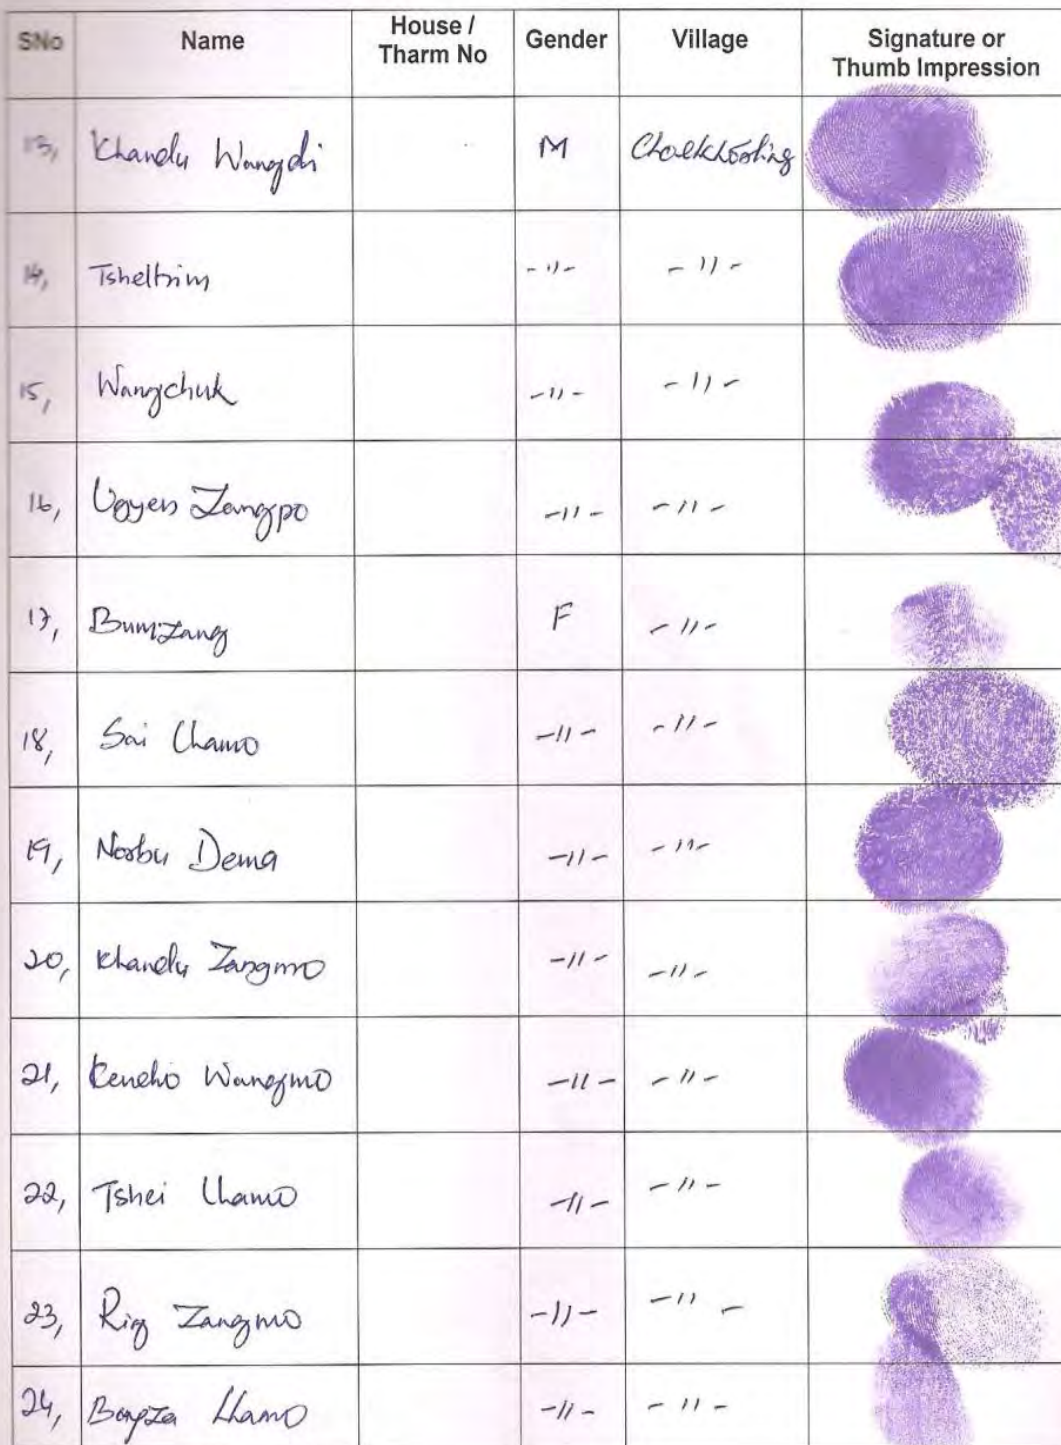 SNo Name House / Tharm No Gender Village Signature or Thumb Impression
13, Khandu Wangdi M
14, Tsheltrim -11- -11-
15, Wangchuk -11- -11-
16, Ugyen Zangpo -11- -11-
17, Bumzang F -11-
18, Sai Lhamo -11- -11-
19, Norbu Dema -11- -11-
20, Khandu Zangmo -11- -11-
21, Kencho Wangmo -11- -11-
22, Tshei Lhamo -11- -11-
23, Rig Zangmo -11- -11-
24, Lhamo -11- -11-